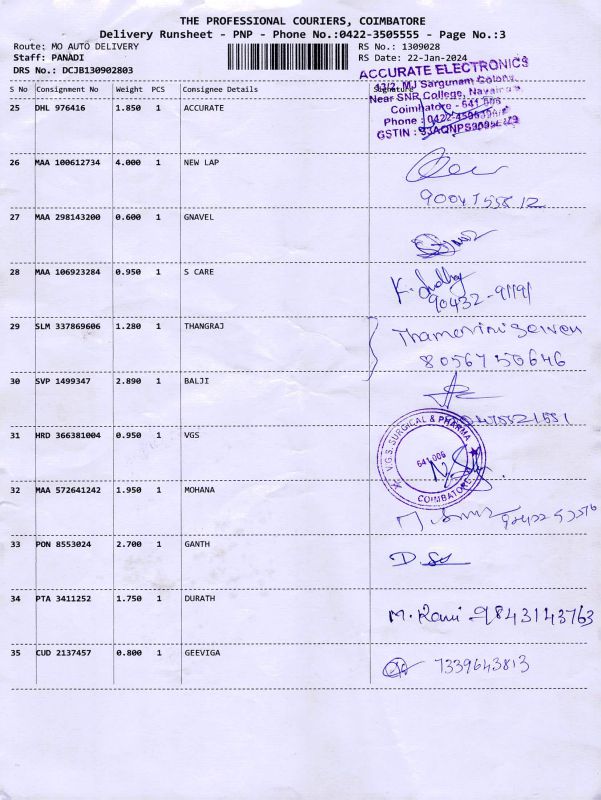 THE PROFESSIONAL COURIERS, COIMBATORE
Delivery Runsheet - PNP - Phone No.:0422-3505555 - Page No.:3
Route: MO AUTO DELIVERY
RS No.: 1309028
Staff: PANADI
RS Date: 22-Jan-2024
DRS No.: DCJB130902803
S No Consignment No Weight PCS Consignee Details Signature
ACCURATE ELECTRONICS
MJ Sargunam Colony,
Near SNR College,
Coimbatore - 641 006
Phone : 0422
GSTIN :
25 DHL 976416 1.850 1 ACCURATE
26 MAA 100612734 4.000 1 NEW LAP
27 MAA 298143200 0.600 1 GNAVEL
28 MAA 106923284 0.950 1 S CARE
90432-91191
29 SLM 337869606 1.280 1 THANGRAJ
8056750646
30 SVP 1499347 2.890 1 BALJI
31 HRD 366381004 0.950 1 VGS
V.G.S. SURGICAL & PHARMA
641 006
COIMBATORE
32 MAA 572641242 1.950 1 MOHANA
33 PON 8553024 2.700 1 GANTH
34 PTA 3411252 1.750 1 DURATH
M. Rani - 9843143763
35 CUD 2137457 0.800 1 GEEVIGA
7339643813